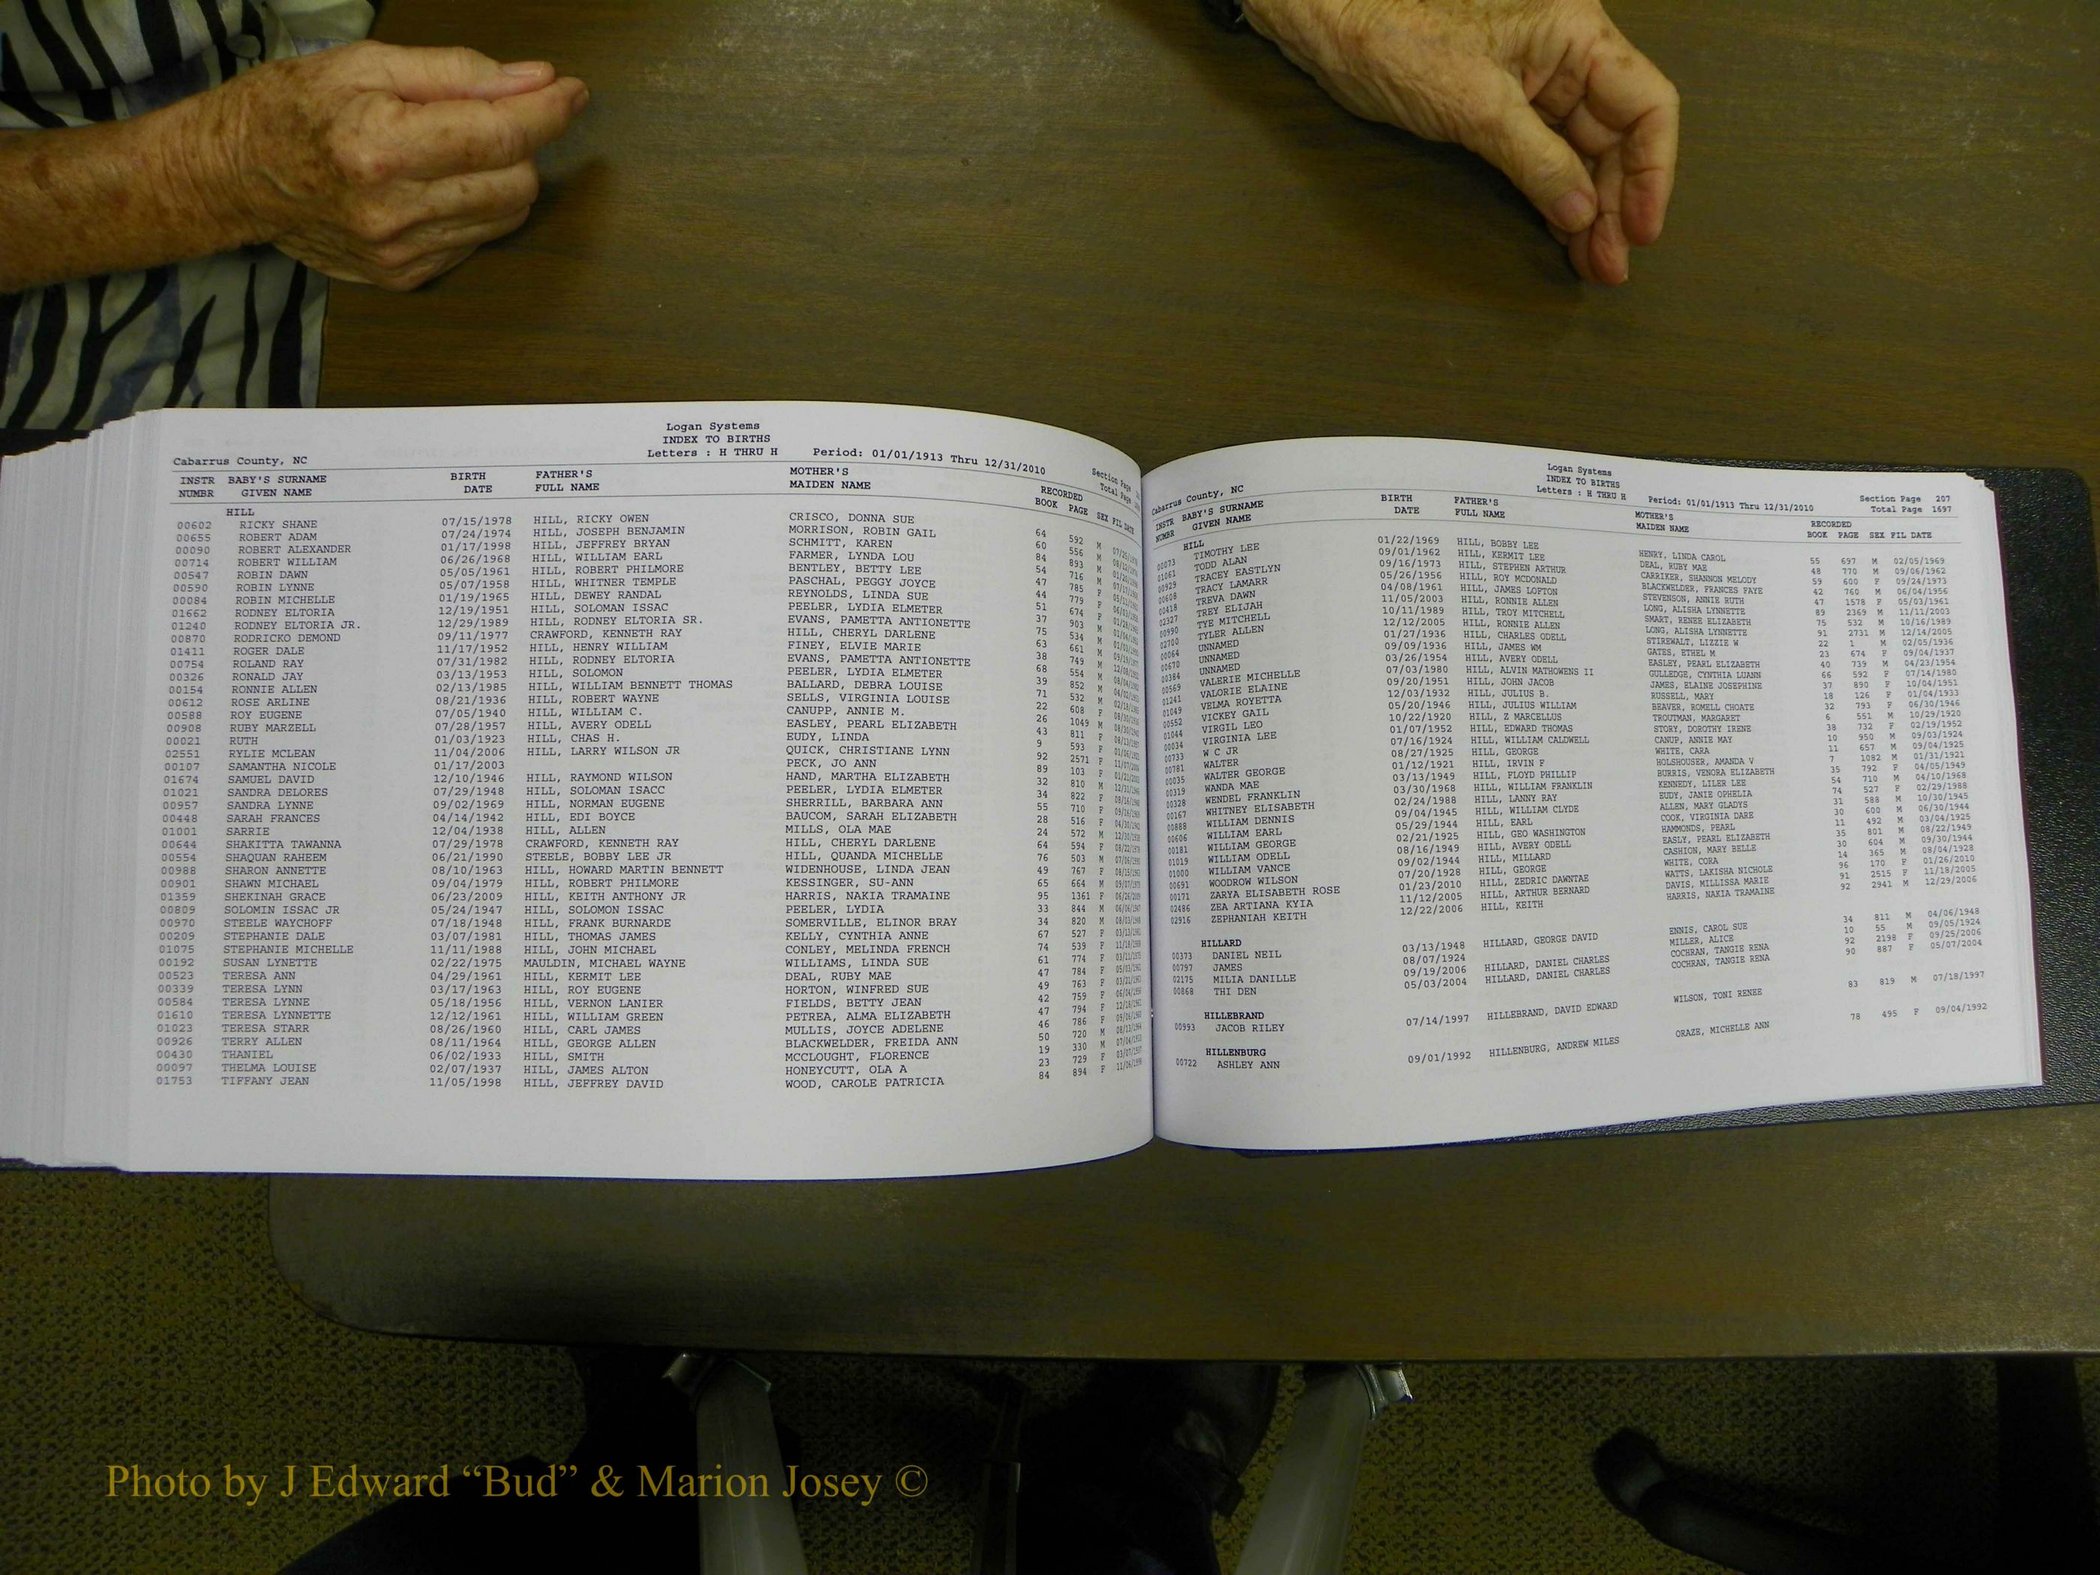 Logan Systems
INDEX TO BIRTHS
Cabarrus County, NC Letters : H THRU H Period: 01/01/1913 Thru 12/31/2010 Section Page
Total Page
INSTR BABY'S SURNAME BIRTH FATHER'S MOTHER'S RECORDED
NUMBR GIVEN NAME DATE FULL NAME MAIDEN NAME BOOK PAGE SEX FIL DATE
HILL
00602 RICKY SHANE 07/15/1978 HILL, RICKY OWEN CRISCO, DONNA SUE 64 592 M
00655 ROBERT ADAM 07/24/1974 HILL, JOSEPH BENJAMIN MORRISON, ROBIN GAIL 60 556 M
00090 ROBERT ALEXANDER 01/17/1998 HILL, JEFFREY BRYAN SCHMITT, KAREN 84 893 M
00714 ROBERT WILLIAM 06/26/1968 HILL, WILLIAM EARL FARMER, LYNDA LOU 54 716 M
00547 ROBIN DAWN 05/05/1961 HILL, ROBERT PHILMORE BENTLEY, BETTY LEE 47 785 F
00590 ROBIN LYNNE 05/07/1958 HILL, WHITNER TEMPLE PASCHAL, PEGGY JOYCE 44 779 F
00084 ROBIN MICHELLE 01/19/1965 HILL, DEWEY RANDAL REYNOLDS, LINDA SUE 51 674 F
01662 RODNEY ELTORIA 12/19/1951 HILL, SOLOMAN ISSAC PEELER, LYDIA ELMETER 37 903 M
01240 RODNEY ELTORIA JR. 12/29/1989 HILL, RODNEY ELTORIA SR. EVANS, PAMETTA ANTIONETTE 75 534 M
00870 RODRICKO DEMOND 09/11/1977 CRAWFORD, KENNETH RAY HILL, CHERYL DARLENE 63 661 M
01411 ROGER DALE 11/17/1952 HILL, HENRY WILLIAM FINEY, ELVIE MARIE 38 749 M
00754 ROLAND RAY 07/31/1982 HILL, RODNEY ELTORIA EVANS, PAMETTA ANTIONETTE 68 554 M
00326 RONALD JAY 03/13/1953 HILL, SOLOMON PEELER, LYDIA ELMETER 39 852 M
00154 RONNIE ALLEN 02/13/1985 HILL, WILLIAM BENNETT THOMAS BALLARD, DEBRA LOUISE 71 532 M
00612 ROSE ARLINE 08/21/1936 HILL, ROBERT WAYNE SELLS, VIRGINIA LOUISE 22 608 F
00588 ROY EUGENE 07/05/1940 HILL, WILLIAM C. CANUPP, ANNIE M. 26 1049 M
00908 RUBY MARZELL 07/28/1957 HILL, AVERY ODELL EASLEY, PEARL ELIZABETH 43 811 F
00021 RUTH 01/03/1923 HILL, CHAS H. EUDY, LINDA 9 593 F
02551 RYLIE MCLEAN 11/04/2006 HILL, LARRY WILSON JR QUICK, CHRISTIANE LYNN 92 2571 F
00107 SAMANTHA NICOLE 01/17/2003 PECK, JO ANN 89 103 F
01674 SAMUEL DAVID 12/10/1946 HILL, RAYMOND WILSON HAND, MARTHA ELIZABETH 32 810 M
01021 SANDRA DELORES 07/29/1948 HILL, SOLOMAN ISACC PEELER, LYDIA ELMETER 34 822 F
00957 SANDRA LYNNE 09/02/1969 HILL, NORMAN EUGENE SHERRILL, BARBARA ANN 55 710 F
00448 SARAH FRANCES 04/14/1942 HILL, EDI BOYCE BAUCOM, SARAH ELIZABETH 28 516 F
01001 SARRIE 12/04/1938 HILL, ALLEN MILLS, OLA MAE 24 572
00644 SHAKITTA TAWANNA 07/29/1978 CRAWFORD, KENNETH RAY HILL, CHERYL DARLENE 64 594 F
00554 SHAQUAN RAHEEM 06/21/1990 STEELE, BOBBY LEE JR HILL, QUANDA MICHELLE 76 503 M
00988 SHARON ANNETTE 08/10/1963 HILL, HOWARD MARTIN BENNETT WIDENHOUSE, LINDA JEAN 49 767 F
00901 SHAWN MICHAEL 09/04/1979 HILL, ROBERT PHILMORE KESSINGER, SU-ANN 65 664 M
01359 SHEKINAH GRACE 06/23/2009 HILL, KEITH ANTHONY JR HARRIS, NAKIA TRAMAINE 95 1361 F
00809 SOLOMIN ISSAC JR 05/24/1947 HILL, SOLOMON ISSAC PEELER, LYDIA 33 844 M
00970 STEELE WAYCHOFF 07/18/1948 HILL, FRANK BURNARDE SOMERVILLE, ELINOR BRAY 34 820 M
00209 STEPHANIE DALE 03/07/1981 HILL, THOMAS JAMES KELLY, CYNTHIA ANNE 67 527 F
01075 STEPHANIE MICHELLE 11/11/1988 HILL, JOHN MICHAEL CONLEY, MELINDA FRENCH 74 539 F
00192 SUSAN LYNETTE 02/22/1975 MAULDIN, MICHAEL WAYNE WILLIAMS, LINDA SUE 61 774 F
00523 TERESA ANN 04/29/1961 HILL, KERMIT LEE DEAL, RUBY MAE 47 784 F
00339 TERESA LYNN 03/17/1963 HILL, ROY EUGENE HORTON, WINFRED SUE 49 763 F
00584 TERESA LYNNE 05/18/1956 HILL, VERNON LANIER FIELDS, BETTY JEAN 42 759 F
01610 TERESA LYNNETTE 12/12/1961 HILL, WILLIAM GREEN PETREA, ALMA ELIZABETH 47 794 F
01023 TERESA STARR 08/26/1960 HILL, CARL JAMES MULLIS, JOYCE ADELENE 46 786 F
00926 TERRY ALLEN 08/11/1964 HILL, GEORGE ALLEN BLACKWELDER, FREIDA ANN 50 720 M
00430 THANIEL 06/02/1933 HILL, SMITH MCCLOUGHT, FLORENCE 19 330 M
00097 THELMA LOUISE 02/07/1937 HILL, JAMES ALTON HONEYCUTT, OLA A 23 729 F
01753 TIFFANY JEAN 11/05/1998 HILL, JEFFREY DAVID WOOD, CAROLE PATRICIA 84 894 F
Logan Systems
INDEX TO BIRTHS
Cabarrus County, NC Letters : H THRU H Period: 01/01/1913 Thru 12/31/2010 Section Page 207
Total Page 1697
INSTR BABY'S SURNAME BIRTH FATHER'S MOTHER'S RECORDED
NUMBR GIVEN NAME DATE FULL NAME MAIDEN NAME BOOK PAGE SEX FIL DATE
HILL
00073 TIMOTHY LEE 01/22/1969 HILL, BOBBY LEE HENRY, LINDA CAROL 55 697 M 02/05/1969
01061 TODD ALAN 09/01/1962 HILL, KERMIT LEE DEAL, RUBY MAE 48 770 M 09/06/1962
00929 TRACEY EASTLYN 09/16/1973 HILL, STEPHEN ARTHUR CARRIKER, SHANNON MELODY 59 600 F 09/24/1973
00608 TRACY LAMARR 05/26/1956 HILL, ROY MCDONALD BLACKWELDER, FRANCES FAYE 42 760 M 06/04/1956
00418 TREVA DAWN 04/08/1961 HILL, JAMES LOFTON STEVENSON, ANNIE RUTH 47 1578 F 05/03/1961
02327 TREY ELIJAH 11/05/2003 HILL, RONNIE ALLEN LONG, ALISHA LYNNETTE 89 2369 M 11/11/2003
00990 TYE MITCHELL 10/11/1989 HILL, TROY MITCHELL SMART, RENEE ELIZABETH 75 532 M 10/16/1989
02700 TYLER ALLEN 12/12/2005 HILL, RONNIE ALLEN LONG, ALISHA LYNNETTE 91 2731 M 12/14/2005
00064 UNNAMED 01/27/1936 HILL, CHARLES ODELL STIREWALT, LIZZIE W 22 1 M 02/05/1936
00670 UNNAMED 09/09/1936 HILL, JAMES WM GATES, ETHEL M 23 674 F 09/04/1937
00384 UNNAMED 03/26/1954 HILL, AVERY ODELL EASLEY, PEARL ELIZABETH 40 739 M 04/23/1954
00569 VALERIE MICHELLE 07/03/1980 HILL, ALVIN MATHOWENS II GULLEDGE, CYNTHIA LUANN 66 592 F 07/14/1980
01241 VALORIE ELAINE 09/20/1951 HILL, JOHN JACOB JAMES, ELAINE JOSEPHINE 37 890 F 10/04/1951
01049 VELMA ROYETTA 12/03/1932 HILL, JULIUS B. RUSSELL, MARY 18 126 F 01/04/1933
00552 VICKEY GAIL 05/20/1946 HILL, JULIUS WILLIAM BEAVER, ROMELL CHOATE 32 793 F 06/30/1946
01044 VIRGIL LEO 10/22/1920 HILL, Z MARCELLUS TROUTMAN, MARGARET 6 551 M 10/29/1920
00034 VIRGINIA LEE 01/07/1952 HILL, EDWARD THOMAS STORY, DOROTHY IRENE 38 732 F 02/19/1952
00733 W C JR 07/16/1924 HILL, WILLIAM CALDWELL CANUP, ANNIE MAY 10 950 M 09/03/1924
00781 WALTER 08/27/1925 HILL, GEORGE WHITE, CARA 11 657 M 09/04/1925
00035 WALTER GEORGE 01/12/1921 HILL, IRVIN F HOLSHOUSER, AMANDA V 7 1082 M 01/31/1921
00319 WANDA MAE 03/13/1949 HILL, FLOYD PHILLIP BURRIS, VENORA ELIZABETH 35 792 F 04/05/1949
00328 WENDEL FRANKLIN 03/30/1968 HILL, WILLIAM FRANKLIN KENNEDY, LILER LEE 54 710 M 04/10/1968
00167 WHITNEY ELISABETH 02/24/1988 HILL, LANNY RAY EUDY, JANIE OPHELIA 74 527 F 02/29/1988
00888 WILLIAM DENNIS 09/04/1945 HILL, WILLIAM CLYDE ALLEN, MARY GLADYS 31 588 M 10/30/1945
00606 WILLIAM EARL 05/29/1944 HILL, EARL COOK, VIRGINIA DARE 30 600 M 06/30/1944
00181 WILLIAM GEORGE 02/21/1925 HILL, GEO WASHINGTON HAMMONDS, PEARL 11 492 M 03/04/1925
01019 WILLIAM ODELL 08/16/1949 HILL, AVERY ODELL EASLY, PEARL ELIZABETH 35 801 M 08/22/1949
01000 WILLIAM VANCE 09/02/1944 HILL, MILLARD CASHION, MARY BELLE 30 604 M 09/30/1944
00691 WOODROW WILSON 07/20/1928 HILL, GEORGE WHITE, CORA 14 365 M 08/04/1928
00171 ZARYA ELISABETH ROSE 01/23/2010 HILL, ZEDRIC DAWNTAE WATTS, LAKISHA NICHOLE 96 170 F 01/26/2010
02486 ZEA ARTIANA KYIA 11/12/2005 HILL, ARTHUR BERNARD DAVIS, MILLISSA MARIE 91 2515 F 11/18/2005
02916 ZEPHANIAH KEITH 12/22/2006 HILL, KEITH HARRIS, NAKIA TRAMAINE 92 2941 M 12/29/2006
HILLARD
00373 DANIEL NEIL 03/13/1948 HILLARD, GEORGE DAVID ENNIS, CAROL SUE 34 811 M 04/06/1948
00797 JAMES 08/07/1924 MILLER, ALICE 10 55 M 09/05/1924
02175 MILIA DANILLE 09/19/2006 HILLARD, DANIEL CHARLES COCHRAN, TANGIE RENA 92 2198 F 09/25/2006
00868 THI DEN 05/03/2004 HILLARD, DANIEL CHARLES COCHRAN, TANGIE RENA 90 887 F 05/07/2004
HILLEBRAND
00993 JACOB RILEY 07/14/1997 HILLEBRAND, DAVID EDWARD WILSON, TONI RENEE 83 819 M 07/18/1997
HILLENBURG
00722 ASHLEY ANN 09/01/1992 HILLENBURG, ANDREW MILES ORAZE, MICHELLE ANN 78 495 F 09/04/1992
Photo by J Edward “Bud” & Marion Josey ©